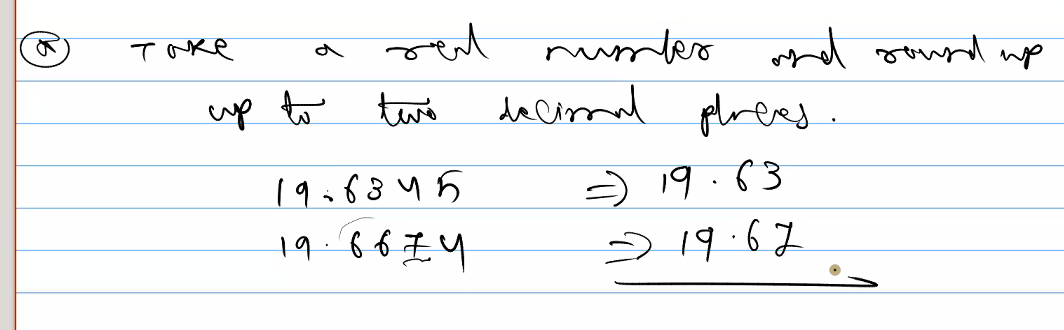 Take a real number and round up
up to two decimal places.
19.6345 ⇒ 19.63
19.6674 ⇒ 19.67